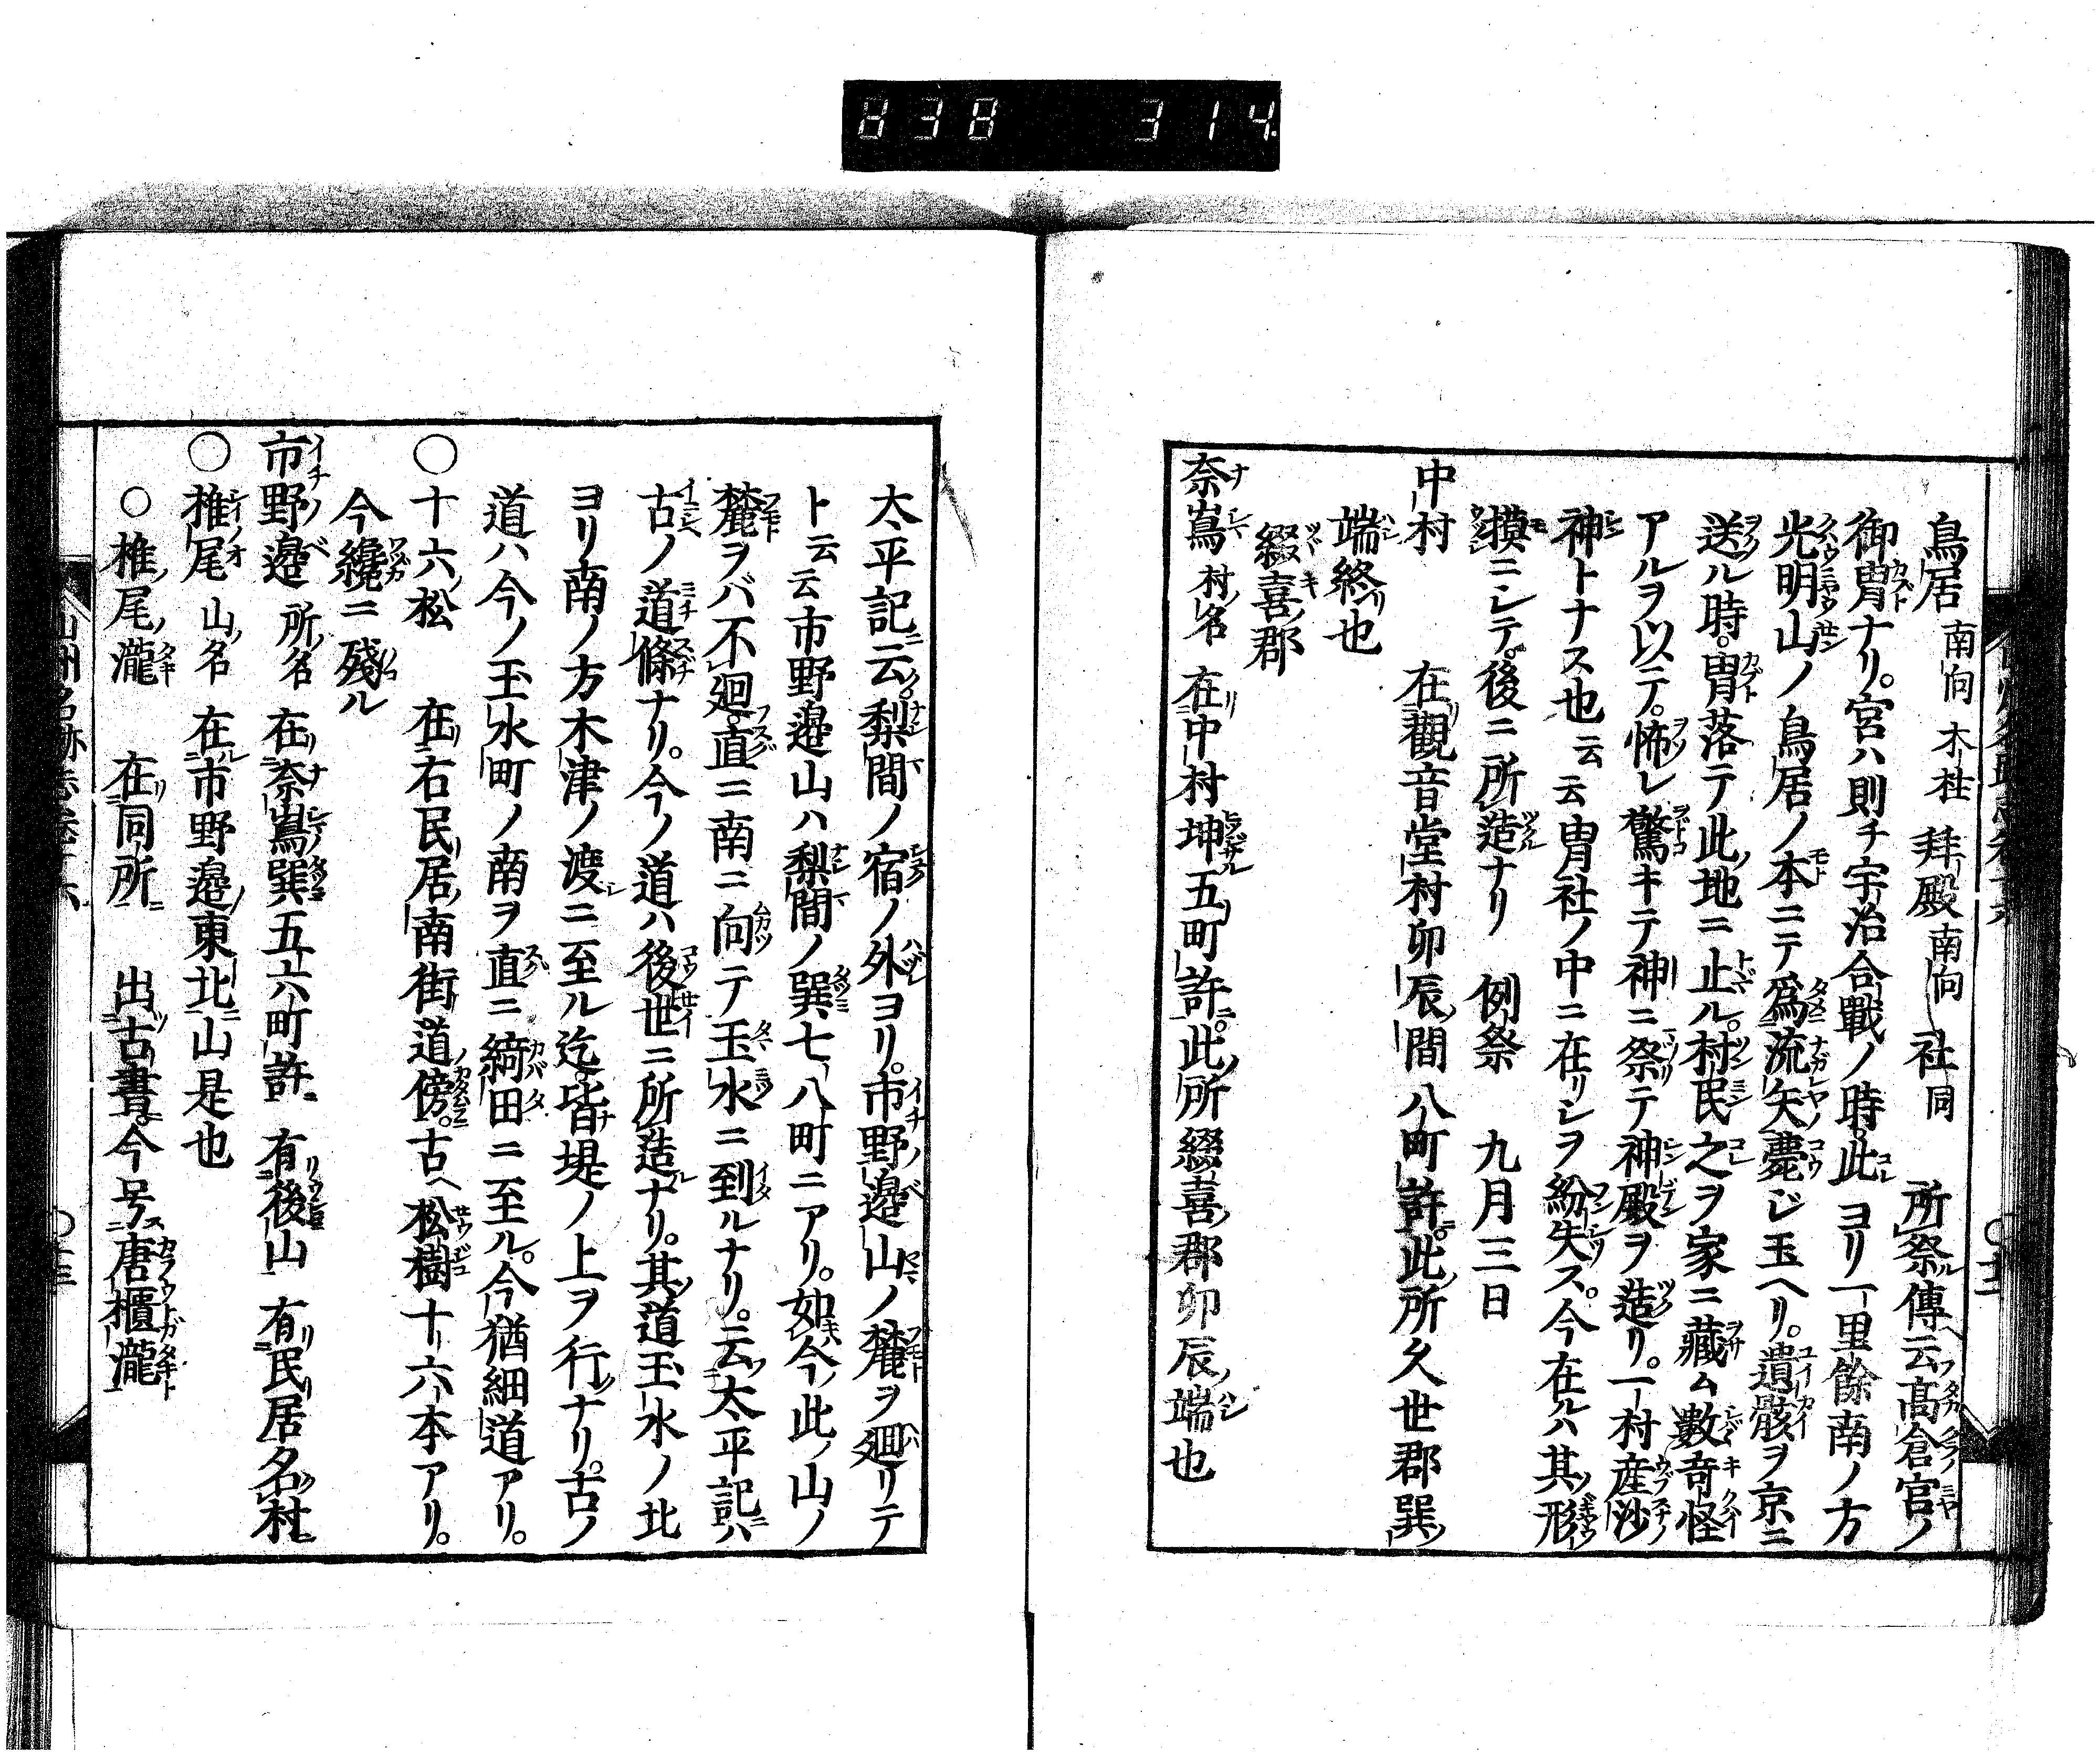 838 314
鳥居 南向 木柱 拜殿 南向 社 同 所祭傳云高倉宮ノ
御冑ナリ。宮ハ則チ宇治合戰ノ時。此ヨリ一里餘南ノ方
光明山ノ鳥居ノ本ニテ爲流矢薨ジ玉ヘリ。遺骸ヲ京ニ
送ル時。冑落テ此地ニ止ル。村民之ヲ家ニ藏ム數奇怪
アルヲ以テ。怖レ驚キテ神ニ祭テ神殿ヲ造リ。一村産沙
神トナス也云云冑社ノ中ニ在リシヲ紛失ス。今在ルハ其形
摸ニシテ。後ニ所造ナリ 例祭 九月三日
中村 在觀音堂村卯辰間八町許。此所久世郡巽
端終也
綴喜郡
奈嶌 村名 在中村坤五町許。此所綴喜郡卯辰端也
太平記云梨間ノ宿ノ外ヨリ。市野邊山ノ麓ヲ廻リテ
ト云云市野邊山ハ梨間ノ巽七八町ニアリ。如今此山ノ
麓ヲバ不廻直ニ南ニ向テ玉水ニ到ルナリ。云太平記ハ
古ノ道條ナリ。今ノ道ハ後世ニ所造ナリ。其道玉水ノ北
ヨリ南ノ方木津ノ渡ニ至ル迄皆堤ノ上ヲ行ナリ。古ノ
道ハ今ノ玉水町ノ南ヲ直ニ綺田ニ至ル。今猶細道アリ。
○十六松 在右民居南街道傍。古ヘ松樹十六本アリ。
今纔ニ殘ル
市野邉 所名 在奈嶌巽五六町許 有後山 有民居名村
○椎尾 山名 在市野邉東北山是也
○椎尾瀧 在同所 出古書。今号唐櫃瀧